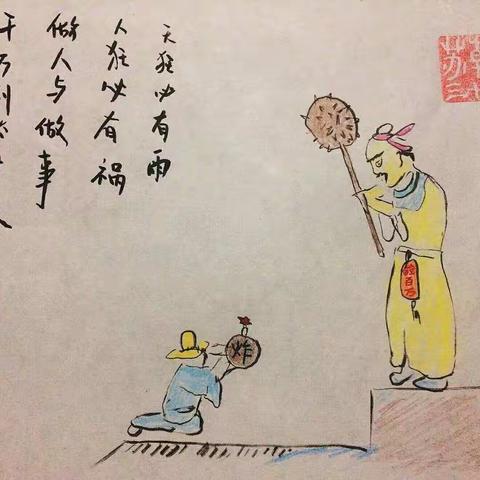 天狂必有雨
人狂必有祸
做人与做事
千万别
炸
百万